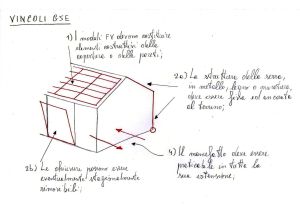 VINCOLI GSE
1) I moduli FV devono costituire
elementi costruttivi della
copertura o delle pareti;
2a) La struttura della serra,
in metallo, legno o muratura,
deve essere fissa ed ancorata
al terreno;
2b) Le chiusure possono essere
eventualmente stagionalmente
rimovibili;
4) Il manufatto deve essere
praticabile in tutta la
sua estensione;